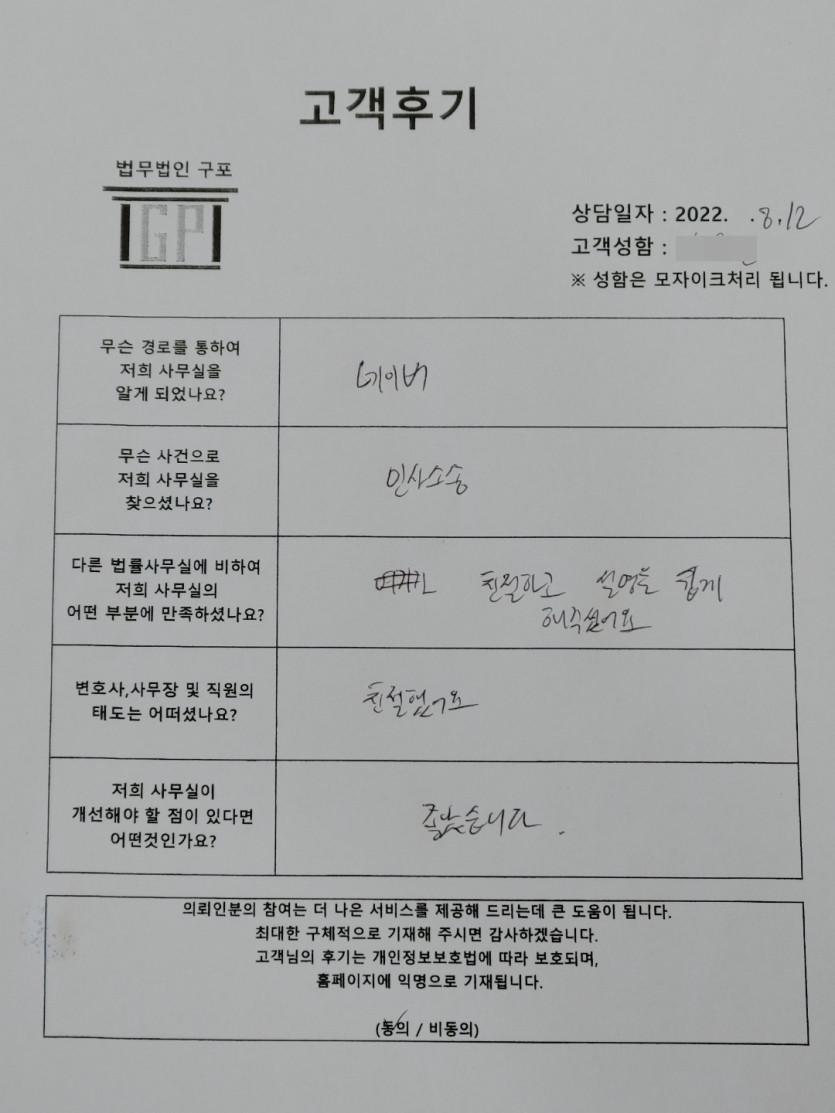 고객후기
법무법인 구포
GP
상담일자 : 2022. . 8. 12
고객성함 :
※ 성함은 모자이크처리 됩니다.
무슨 경로를 통하여
저희 사무실을
알게 되었나요?
네이버
무슨 사건으로
저희 사무실을
찾으셨나요?
민사소송
다른 법률사무실에 비하여
저희 사무실의
어떤 부분에 만족하셨나요?
친절하고 설명을 쉽게
해주셨어요
변호사,사무장 및 직원의
태도는 어떠셨나요?
친절했어요
저희 사무실이
개선해야 할 점이 있다면
어떤것인가요?
좋았습니다.
의뢰인분의 참여는 더 나은 서비스를 제공해 드리는데 큰 도움이 됩니다.
최대한 구체적으로 기재해 주시면 감사하겠습니다.
고객님의 후기는 개인정보보호법에 따라 보호되며,
홈페이지에 익명으로 기재됩니다.
(동의 / 비동의)